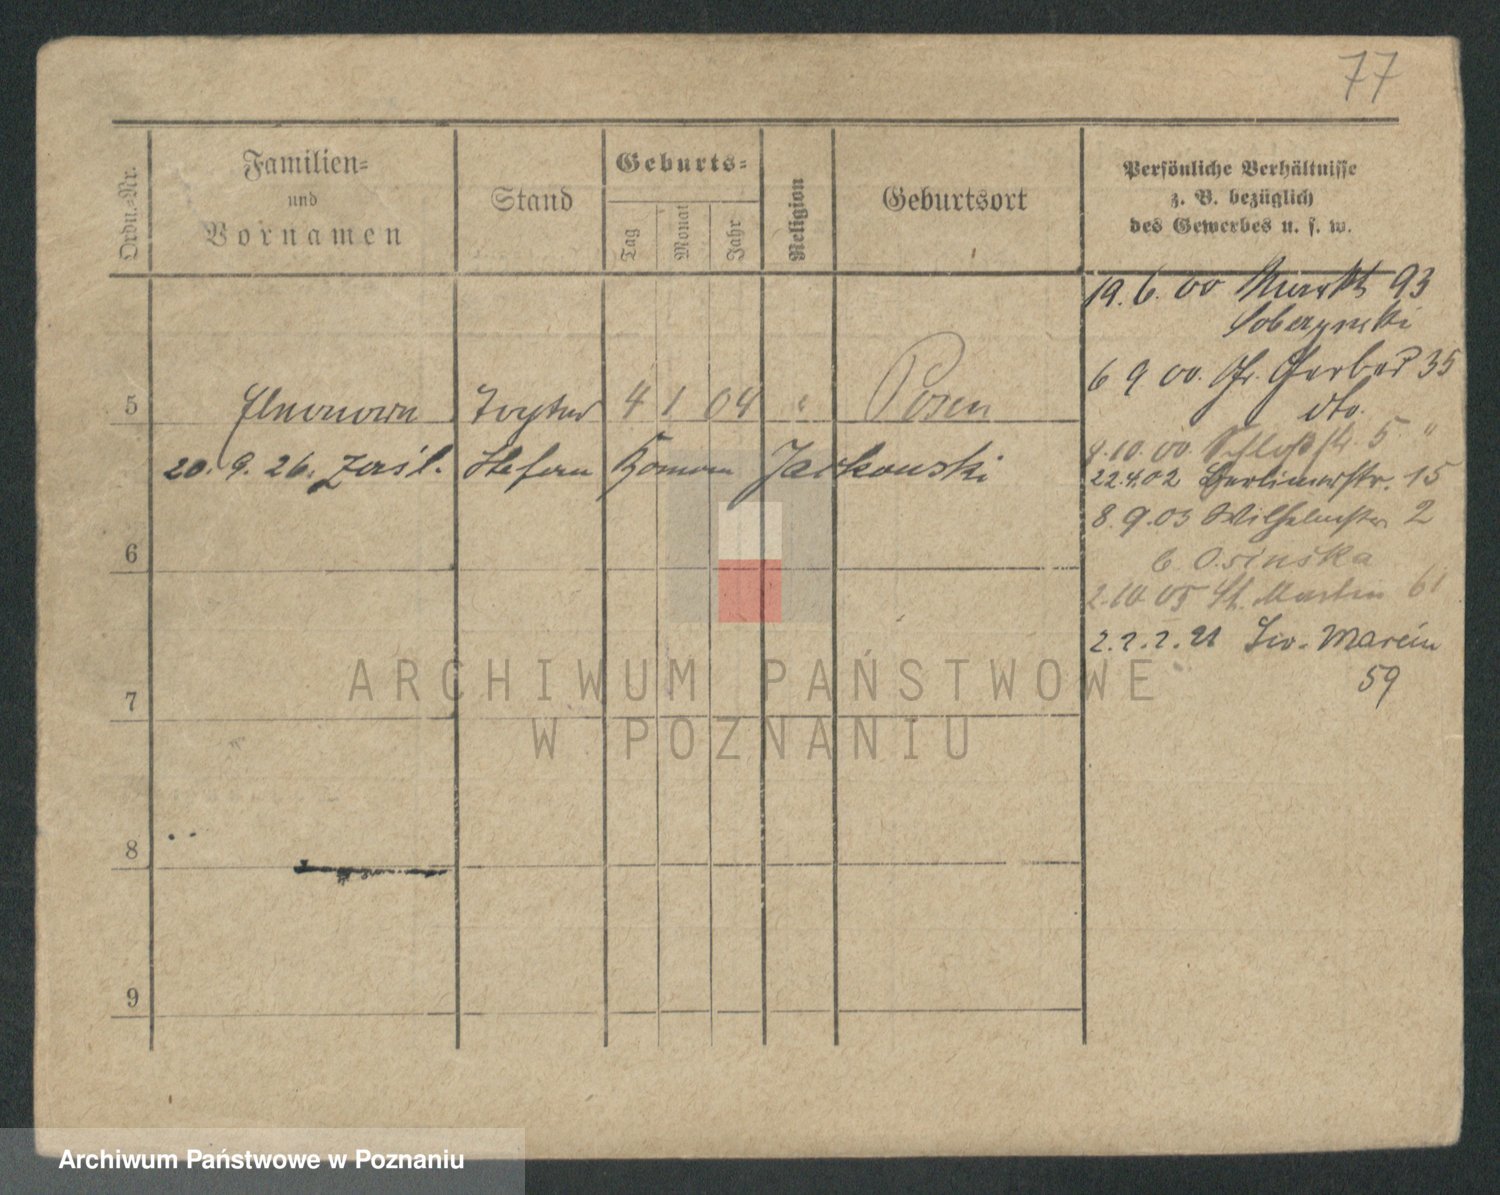 77
Ordn.-Nr.
Familien-
und
Vornamen
Stand
Geburts-
Tag
Monat
Jahr
Religion
Geburtsort
Persönliche Verhältnisse
z. B. bezüglich
des Gewerbes u. s. w.
19. 6. 00 Markt 93
6 9 00. Gr. Gerber 35
dto.
5 Eleonora Tochter 4 1 04 " Posen
4.10.00 Schloßstr. 5 "
20. 9. 26. zaśl. Stefan Roman Jackowski
22.4.02 Berlinerstr. 15
8. 9. 03 Wilhelmstr 2
6
b Osinska
2.10.05 St. Martin 61
2.2.2.21 Św. Marcin
59
7
8
9
ARCHIWUM PAŃSTWOWE
W POZNANIU
Archiwum Państwowe w Poznaniu